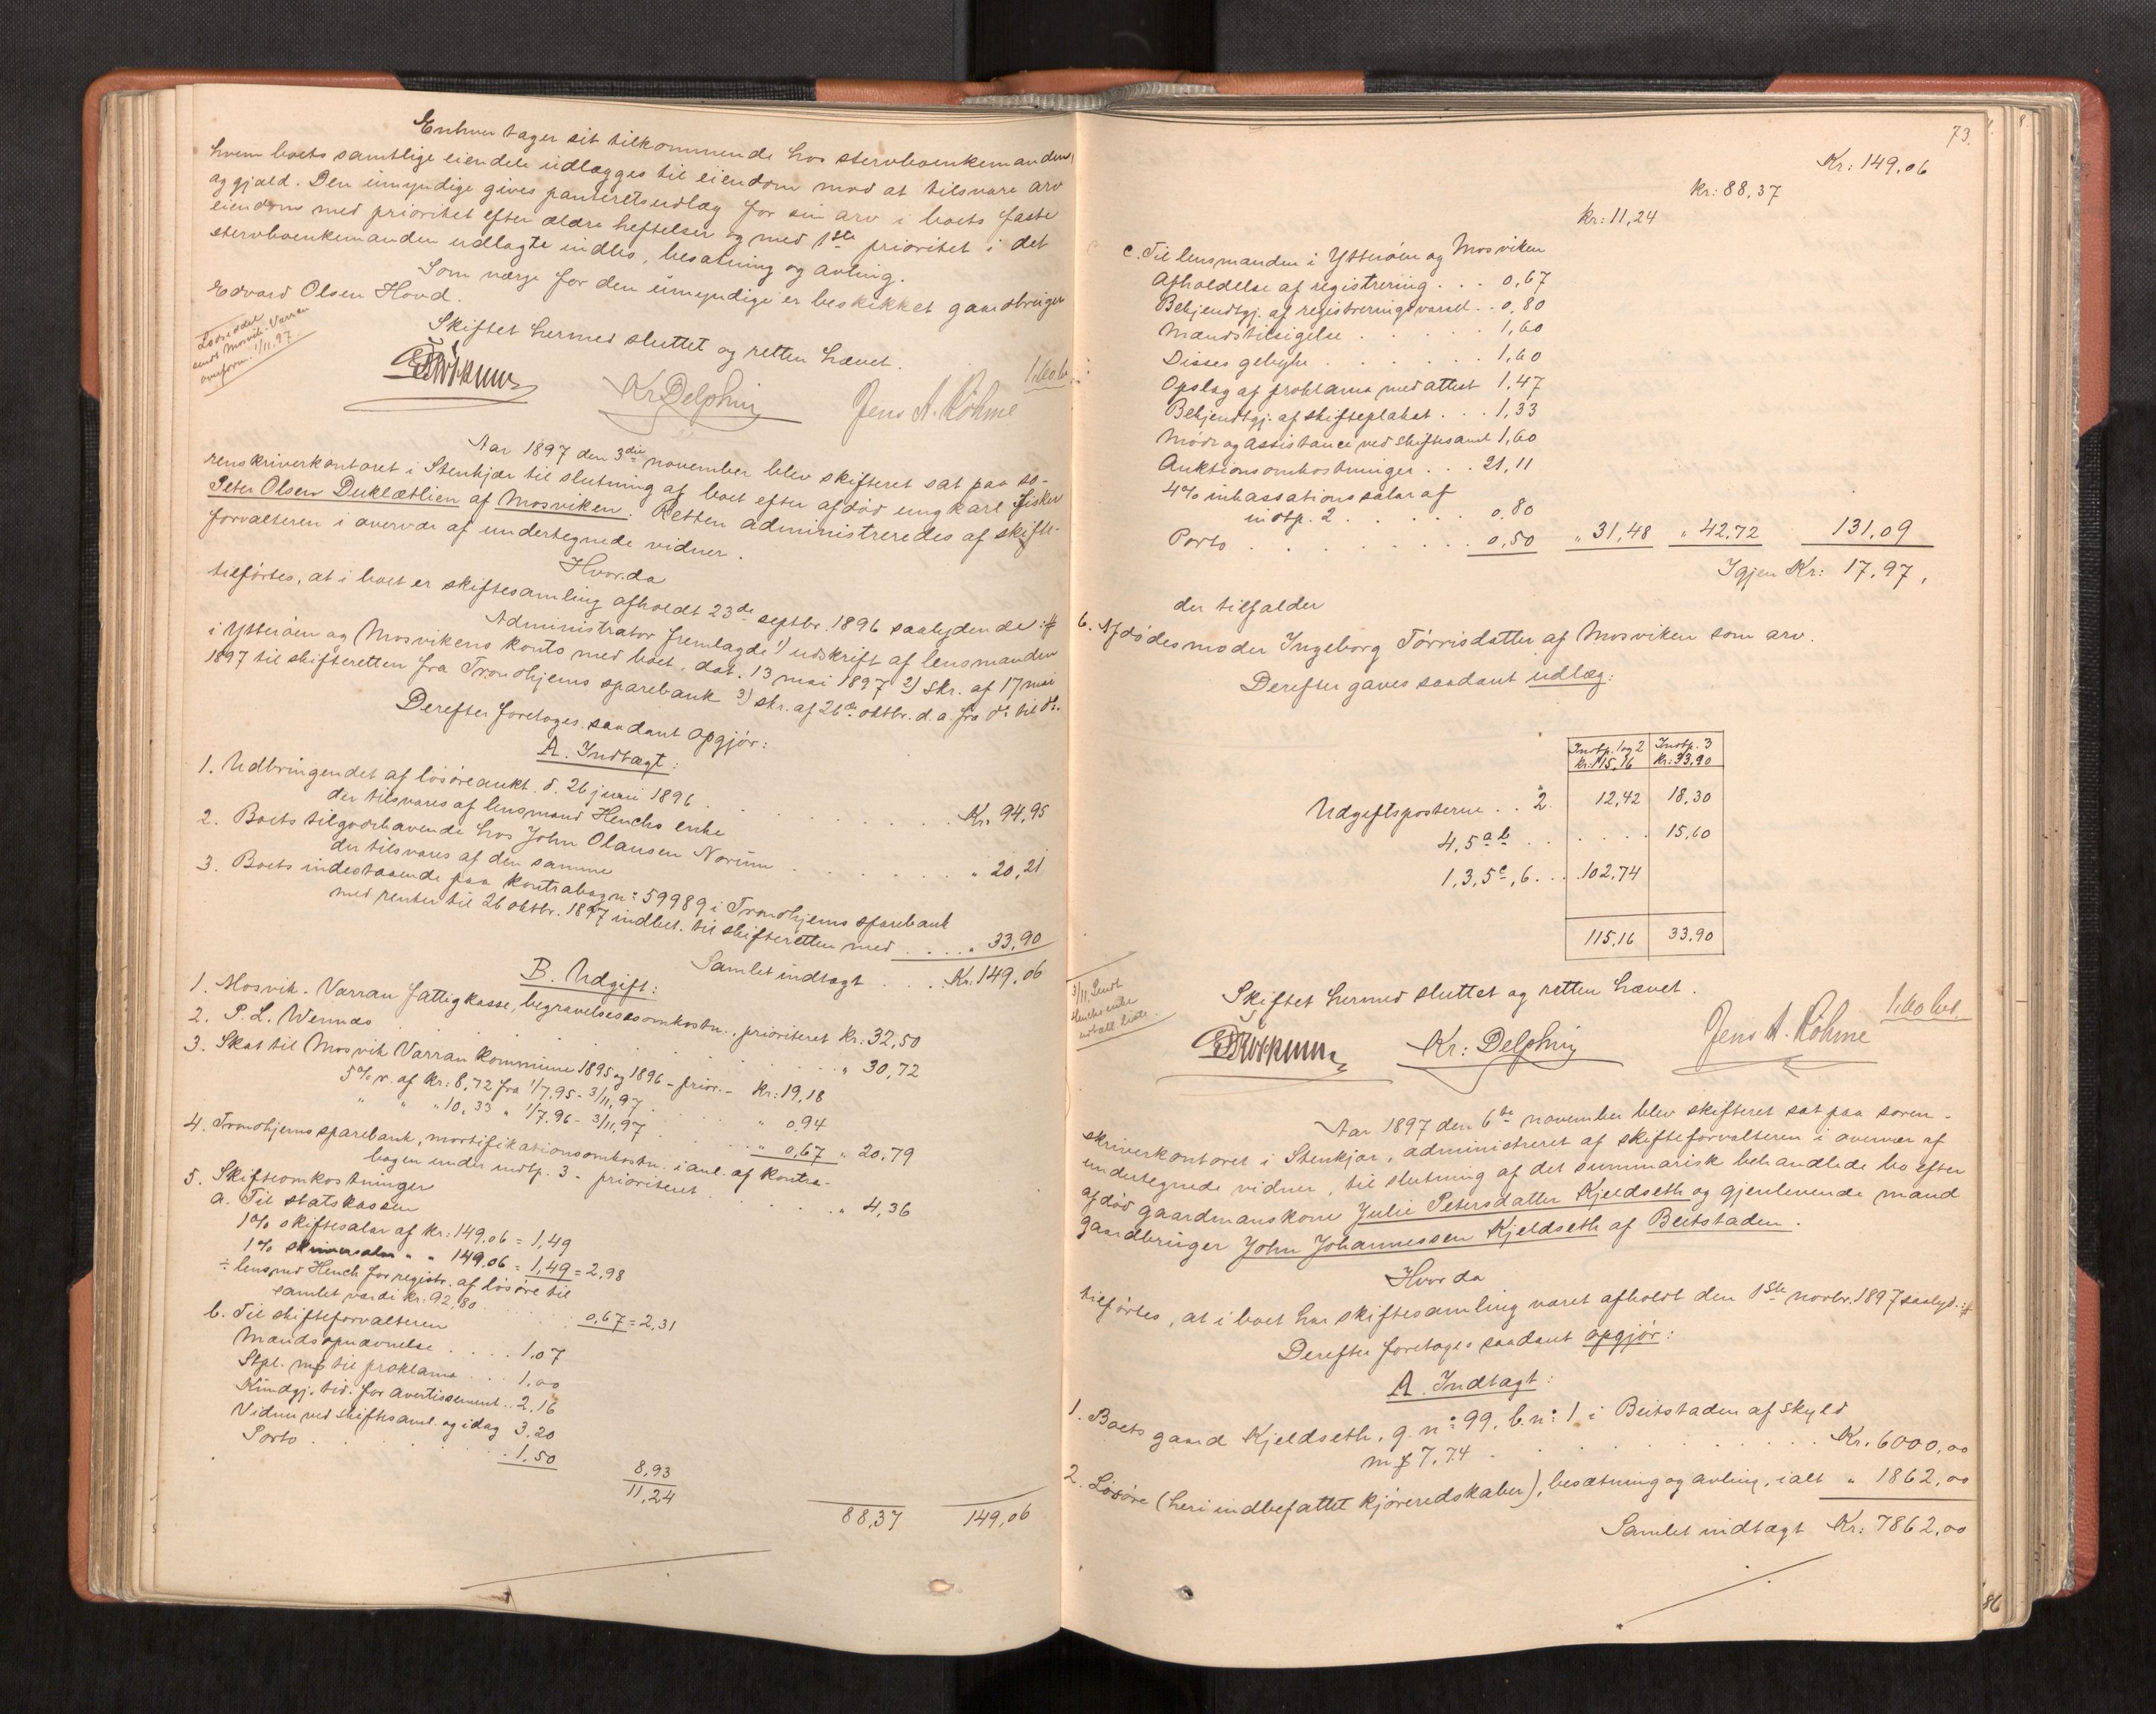 Enhver tager sit tilkommende hos stervboenkemanden,
hvem boets samtlige eiendele udlægges til eiendom mod at tilsvare arv
og gjæld. Den umyndige gives panteretsudlæg for sin arv i boets faste
eiendom med prioritet efter ældre heftelser og med 1ste prioritet i det
stervboenkemanden udlagte indbo, besætning og avling.
Som værge for den umyndige er beskikket gaardbruger
Edvard Olsen Hovd.
Skiftet hermed sluttet og retten hævet.
sendt Mosvik-Varran
overform. 1/11.97.
Kr. Delphin
Jens A. Röhme
Aar 1897 den 3die november blev skifteret sat paa so-
renskriverkontoret i Stenkjær til slutning af boet efter afdöd ungkarl fisker
Peter Olsen Duklætlien af Mosviken. Retten administreredes af skifte-
forvalteren i overvær af undertegnede vidner.
Hvorda
tilförtes, at i boet er skiftesamling afholdt 23de septbr. 1896 saalydende:#
Administrator fremlagde 1) udskrift af lensmanden
i Ytteröen og Mosvikens konto med boet, dat. 13 mai 1897 2) skr. af 17 mai
1897 til skifteretten fra Trondhjems sparebank 3) skr. af 26de oktbr. d.a. fra do til do.
Derefter foretoges saadant opgjör:
A. Indtægt:
1. Udbringendet af lösöreaukt. d. 26 juni 1896
der tilsvares af lensmand Henchs enke . . . Kr. 94,95
2. Boets tilgodehavende hos John Olausen Norum
der tilsvares af den samme . . . " 20,21
3. Boets indestaaende paa kontrabog no 59989 i Trondhjems sparebank
med renter til 26 oktbr. 1897 indbet. til skifteretten med . . . . " 33,90
Samlet indtægt . . . Kr. 149,06
B. Udgift:
1. Mosvik-Varran fattigkasse, begravelsesomkostn., prioriteret Kr: 32,50
2. P. L. Wennes . . . " 30,72
3. Skat til Mosvik Varran kommune 1895 og 1896 - prior. - Kr: 19,18
5% r. af Kr: 8,72 fra 1/7.95 - 3/11.97 . . " 0,94
" " " 10,33 " 1/7.96 - 3/11.97 . . . " 0,67 " 20,79
4. Trondhjems sparebank, mortifikationsomkostn. i anl. af kontra-
bogen under indtp. 3 - prioriteret . . . " 4,36
5. Skifteomkostninger
a. Til statskassen
1% skiftesalær af Kr: 149,06 = 1,49
1% skriversalær " " 149,06 = 1,49 = 2,98
÷ lensmd Hench for registr. af lösöre til
samlet værdi kr. 92,80 . . . 0,67 = 2,31
b. Til skifteforvalteren
Mandsopnævnelse . . . . 1,07
Stpl. m/ til proklama . . . 1,00
Kundgj. tid. for avertissement . . 2,16
Vidner ved skiftesaml. og idag 3,20
Porto . . . 1,50
8,93
11,24
88,37 149,06
73.
Kr: 149,06
Kr: 88,37
Kr: 11,24
c. Til lensmanden i Ytteröen og Mosviken
Afholdelse af registrering . . . 0,67
Bekjendtgj. af registreringsvarsel . . 0,80
Mandstilsigelse . . . 1,60
Disses gebyhr . . . 1,60
Opslag af proklama med attest 1,47
Bekjendtgj. af skifteplakat . . . 1,33
Möde og assistance ved skiftesaml 1,60
Auktionsomkostninger . . . 21,11
4% inkassationssalær af
indtp. 2 . . . 0,80
Porto . . . 0,50 " 31,48 " 42,72 131,09
Igjen Kr: 17,97,
der tilfalder
6. Afdödes moder Ingeborg Törrisdatter af Mosviken som arv.
Derefter gaves saadant udlæg:
Indtp. 1 og 2 Indtp. 3
Kr: 115,16 Kr: 33,90
Udgiftsposterne . . 2. 12,42 18,30
4, 5 a b . . . . . 15,60
1, 3, 5 c, 6 . . . 102,74
115,16 33,90
Skiftet hermed sluttet og retten hævet.
3/11. Sendt
Henchs enke
Kr: Delphin
Jens A. Röhme
Aar 1897 den 6te november blev skifteret sat paa soren-
skriverkontoret i Stenkjær, administreret af skifteforvalteren i overvær af
undertegnede vidner, til slutning af det summarisk behandlede bo efter
afdöd gaardmanskone Julie Petersdatter Kjeldseth og gjenlevende mand
gaardbruger John Johannessen Kjeldseth af Beitstaden.
Hvorda
tilförtes, at i boet har skiftesamling været afholdt den 1ste novbr. 1897 saalyd.:#
Derefter foretoges saadant opgjör:
A. Indtægt:
1. Boets gaard Kjeldseth, g. no: 99, b. no: 1 i Beitstaden af skyld
m/ 7.74 . . . Kr. 6000,00
2. Lösöre (heri indbefattet kjöreredskaber), besætning og avling, ialt " 1862,00
Samlet indtægt Kr: 7862,00
86